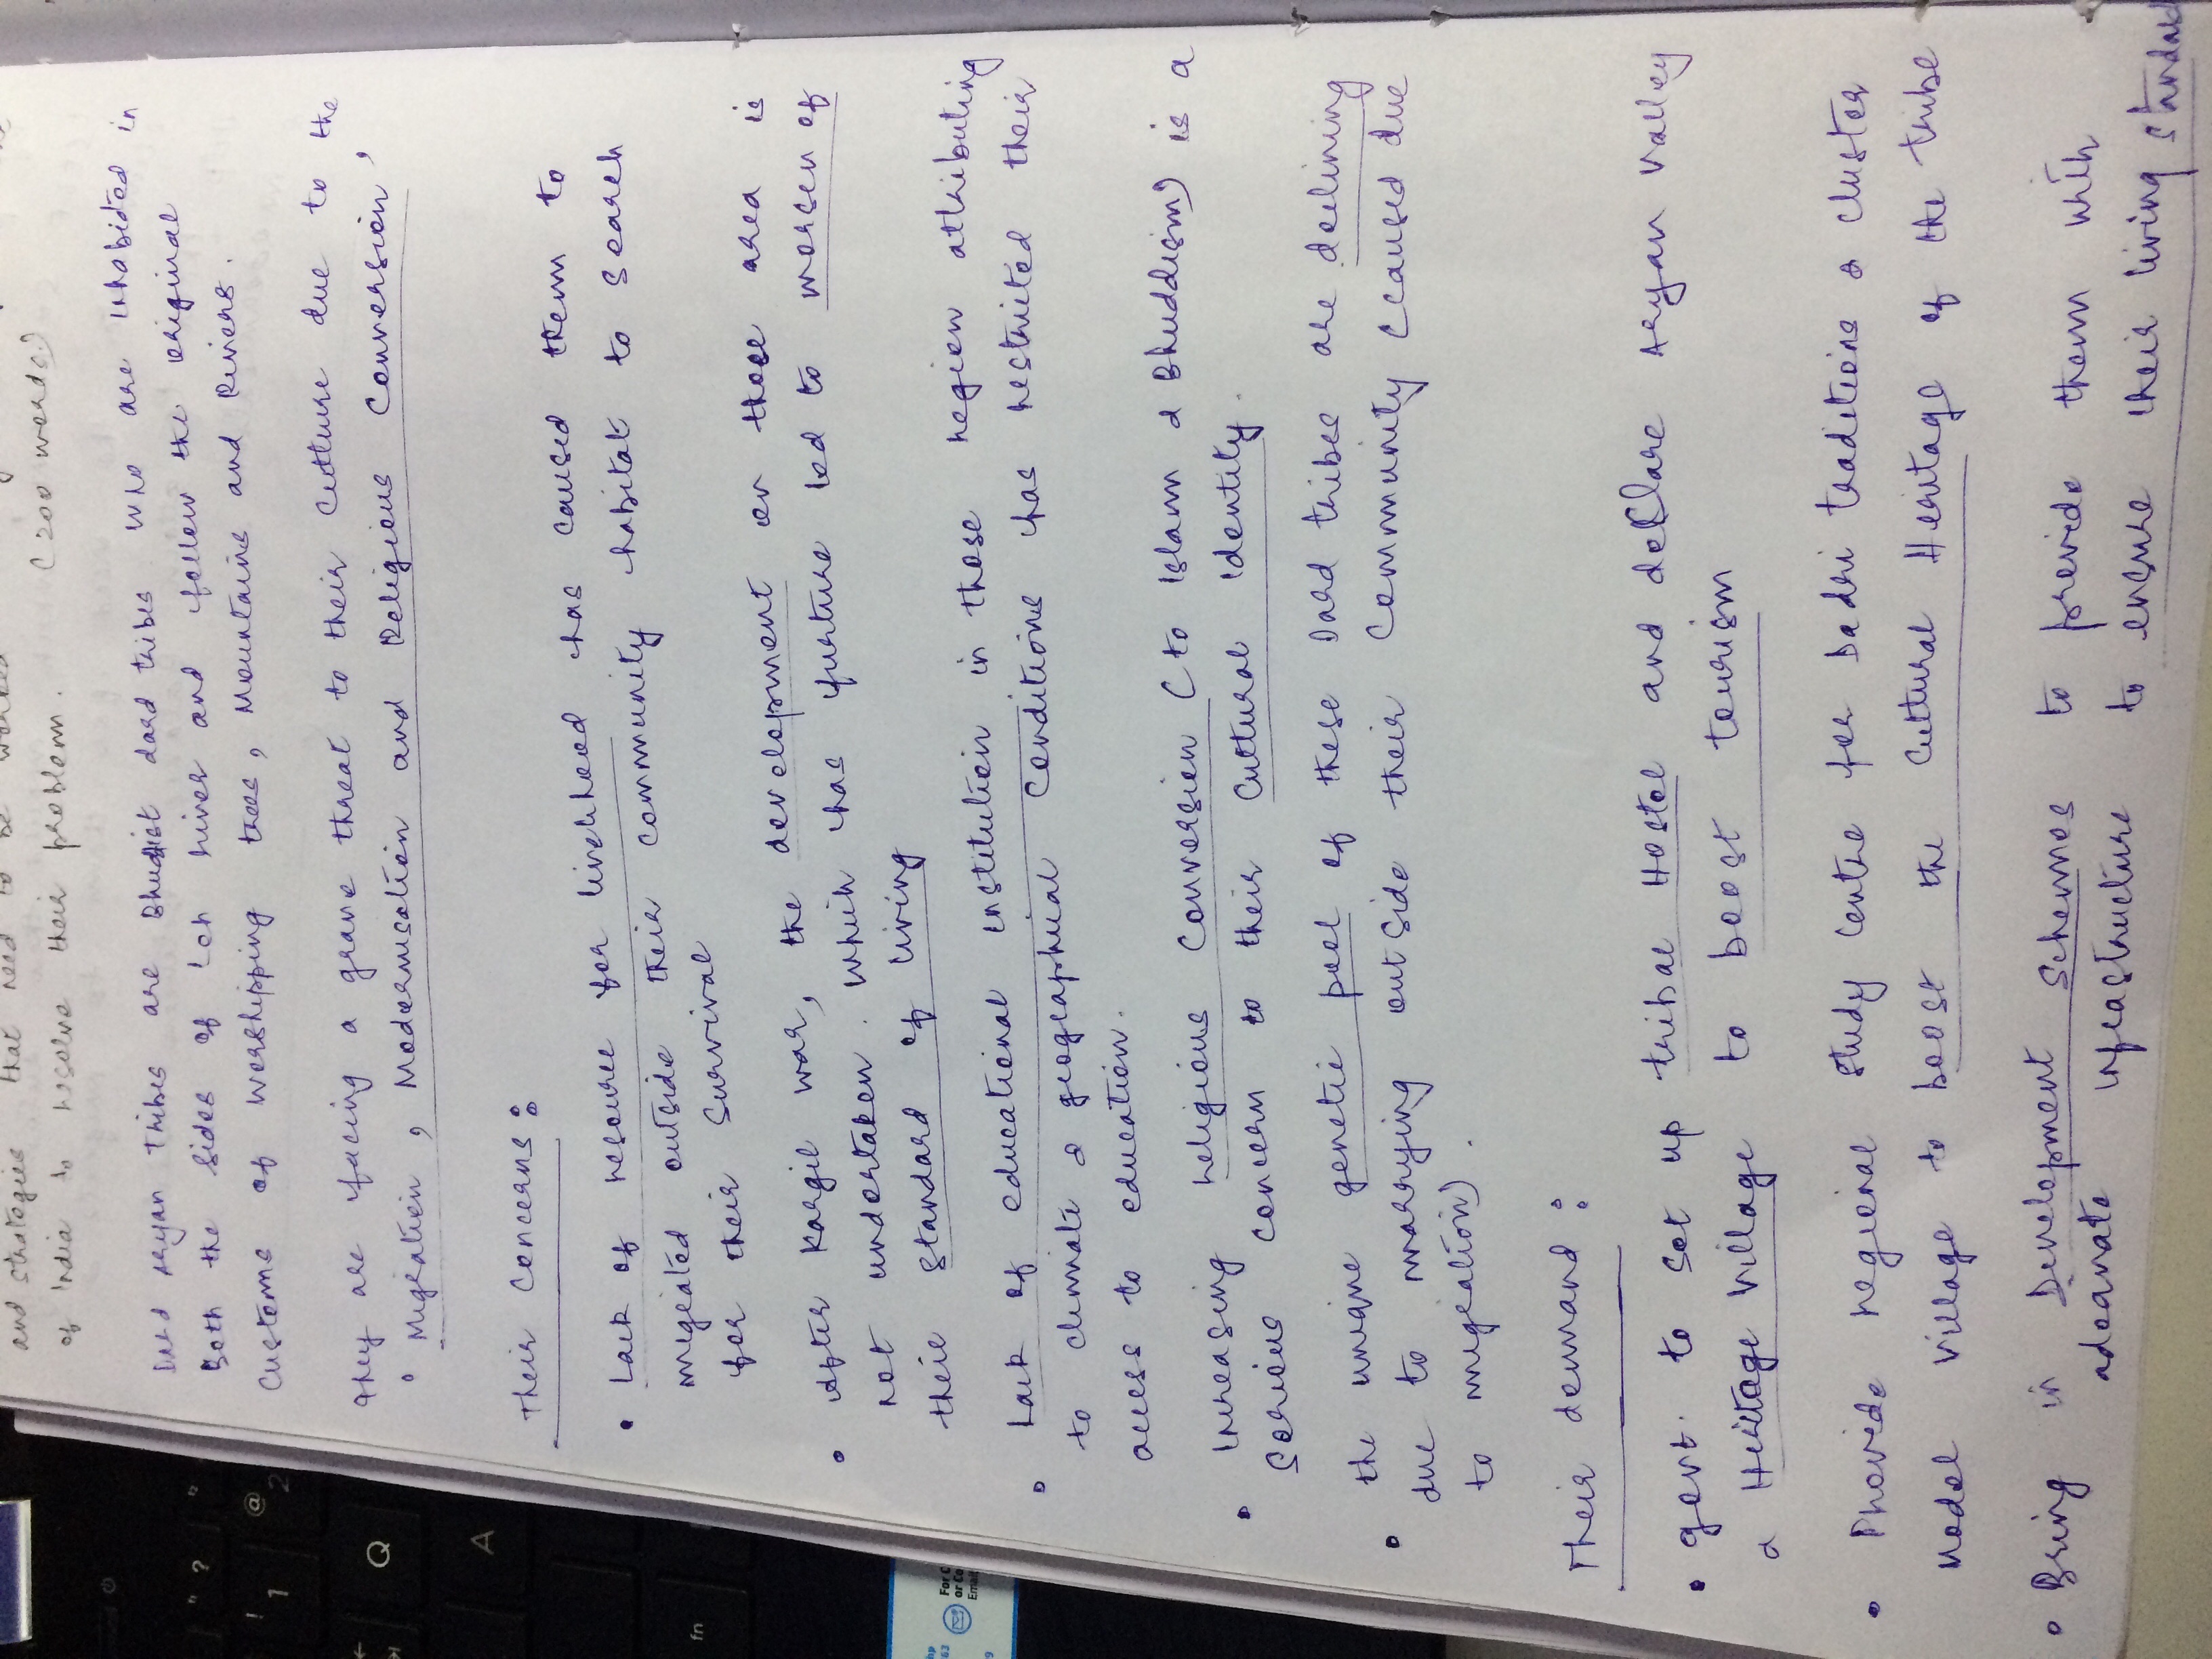 and strategies that need to be
of India to resolve their problem. (200 words)
Dard Aryan Tribes are Bhudist dard tribes who are inhabited in
Both the sides of LCR river and follow the original
Customs of worshipping trees, Mountains and Rivers.
They are facing a grave threat to their culture due to the
Migration, Modernisation and Religious Conversion,
Their concerns:
• Lack of resource for livelihood has caused them to
migrated outside their community habitat to search
for their survival
• After Kargil war, the development on those area is
not undertaken. which has furture led to worsen of
their standard of living
• Lack of educational institution in these region attributing
to climate & geographical conditions has restricted their
access to education.
• Increasing religious conversion (to Islam & Bhuddism) is a
serious concern to their cultural identity.
• the unique genetic pool of these Dard tribes are declining
due to marrying outside their community (caused due
to migration).
Their demand:
• govt. to set up tribal Hostel and declare Aryan valley
a Heritage village to boost tourism
• Provide regional study centre for Dadri traditions & cluster
model village to boost the cultural Heritage of the tribe
• Bring in Development Schemes to provide them with
adequate infrastructure to ensure their living standard
" ?
! 1
@ 2
Q
A
fn
For C
or Co
Ema